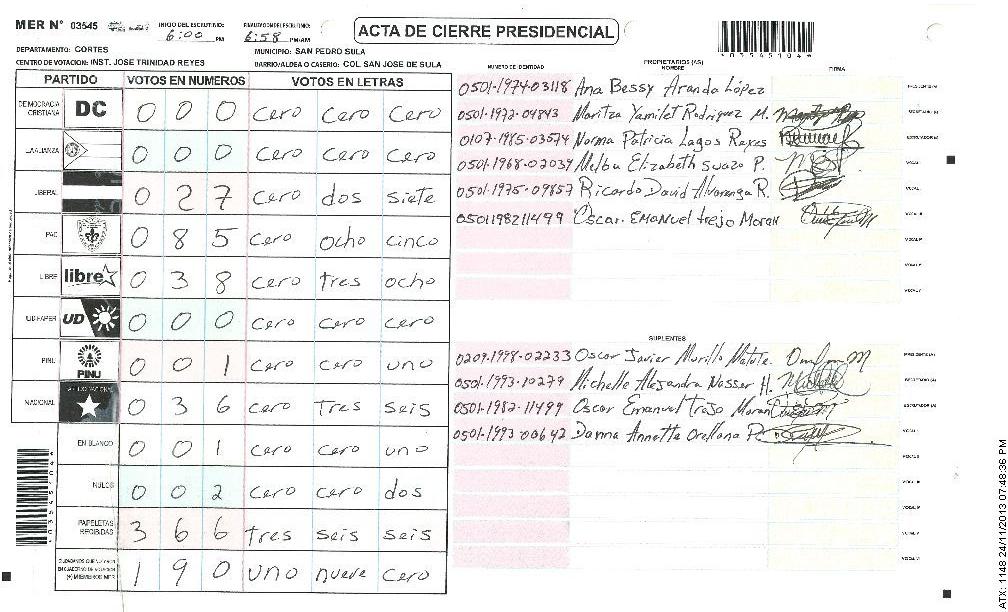 MER N° 03545 INICIO DEL ESCRUTINIO: 6:00 PM FINALIZACION DEL ESCRUTINIO: 6:58 PM-AM
ACTA DE CIERRE PRESIDENCIAL
*03545104*
DEPARTAMENTO: CORTES MUNICIPIO: SAN PEDRO SULA
CENTRO DE VOTACION: INST. JOSE TRINIDAD REYES BARRIO/ALDEA O CASERIO: COL SAN JOSE DE SULA
PARTIDO VOTOS EN NUMEROS VOTOS EN LETRAS
DEMOCRACIA CRISTIANA DC 0 0 0 cero cero cero
LA ALIANZA 0 0 0 cero cero cero
LIBERAL 0 2 7 cero dos siete
PAC 0 8 5 cero ocho cinco
LIBRE libre 0 3 8 cero tres ocho
UD FAPER UD 0 0 0 cero cero cero
PINU PINU 0 0 1 cero cero uno
NACIONAL 0 3 6 cero tres seis
EN BLANCO 0 0 1 cero cero uno
NULOS 0 0 2 cero cero dos
PAPELETAS RECIBIDAS 3 6 6 tres seis seis
CIUDADANOS QUE VOTARON EN CUADERNO DE VOTACION (+) MIEMBROS MER 1 9 0 uno nueve cero
*03545104*
NUMERO DE IDENTIDAD PROPIETARIOS (AS) NOMBRE FIRMA
0501-1974-03118 Ana Bessy Aranda López PRESIDENTE(A)
0501-1972-04843 Maritza Yamilet Rodriguez M. SECRETARIO (A)
0107-1985-03574 Norma Patricia Lagos Reyes ESCRUTADOR (A)
0501-1968-02039 Melba Elizabeth Suazo P. VOCAL I
0501-1975-09857 Ricardo David Alvarenga R. VOCAL II
0501198211499 Oscar Emanuel trejo Moran VOCAL III
VOCAL IV
VOCAL V
VOCAL VI
SUPLENTES
0209-1998-02233 Oscar Javier Murillo Matute. PRESIDENTE(A)
0501-1993-10279 Michelle Alejandra Nasser H. SECRETARIO (A)
0501-1982-11499 Oscar Emanuel Trejo Moran ESCRUTADOR (A)
0501-1993-00642 Danna Annette Orellana P. VOCAL I
VOCAL II
VOCAL III
VOCAL IV
VOCAL V
VOCAL VI
ATX: 1148 24/11/2013 07:48:36 PM